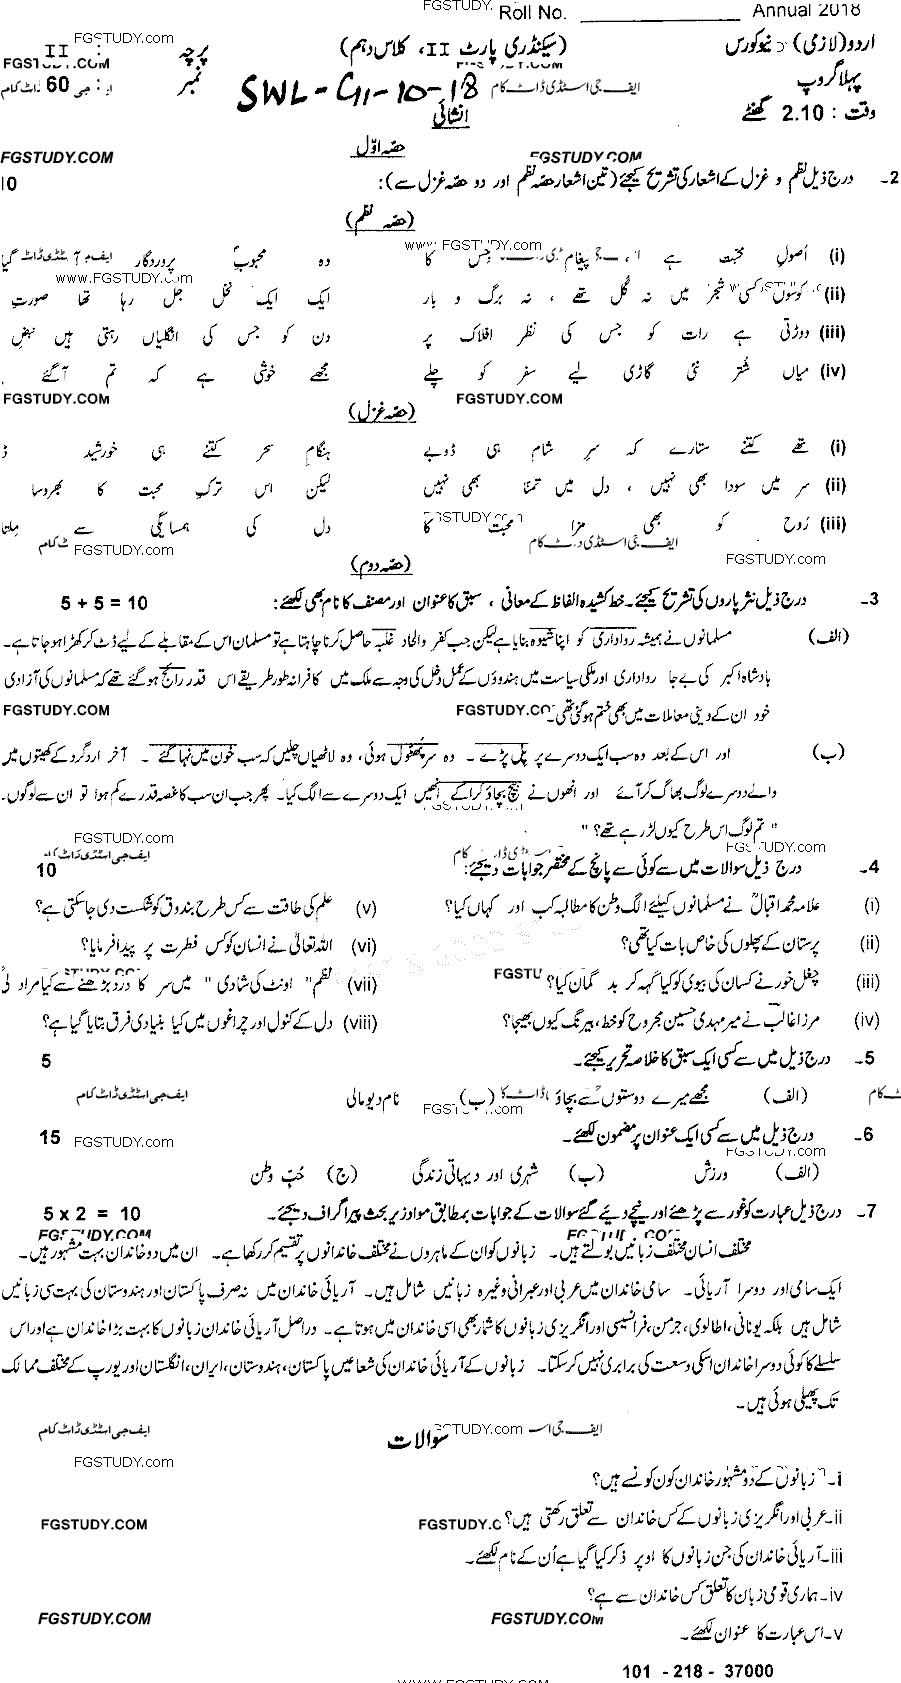 FGSTUDY. Roll No. ____________ Annual 2018
اردو (لازمی) نیو کورس (سیکنڈری پارٹ II، کلاس دہم) پرچہ : II
FGSTUDY.com
FGSTUDY.COM
پہلا گروپ SWL-G1-10-18 ایف جی اسٹڈی ڈاٹ کام نمبر 60
وقت : 2.10 گھنٹے انشائی
حصہ اوّل
FGSTUDY.COM FGSTUDY.COM
2۔ درج ذیل نظم و غزل کے اشعار کی تشریح کیجئے (تین اشعار حصہ نظم اور دو حصہ غزل سے): 10
(حصہ نظم)
www.FGSTUDY.com
(i) اُصولِ محبت ہے پیغام جس کا وہ محبوبِ پروردگار آ گیا
www.FGSTUDY.com
(ii) کوسوں کسی شجر میں نہ گُل تھے ، نہ برگ و بار ایک ایک نخل جل رہا تھا صورتِ
(iii) دوڑتی ہے رات کو جس کی نظر افلاک پر دن کو جس کی انگلیاں رہتی ہیں نبضِ
(iv) میاں شُتر نئی گاڑی لیے سفر کو چلے مجھے خوشی ہے کہ تم آ گئے
FGSTUDY.COM FGSTUDY.COM
(حصہ غزل)
(i) تھے کتنے ستارے کہ سرِ شام ہی ڈوبے ہنگامِ سحر کتنے ہی خورشید
(ii) سر میں سودا بھی نہیں ، دل میں تمنا بھی نہیں لیکن اس ترکِ محبت کا بھروسا
FGSTUDY.com
(iii) رُوح کو بھی مزا محبت کا دل کی ہمسائیگی سے مِلتا
ایف جی اسٹڈی ڈاٹ کام
FGSTUDY.com FGSTUDY.com
(حصہ دوم)
3۔ درج ذیل نثر پاروں کی تشریح کیجئے۔ خط کشیدہ الفاظ کے معانی ، سبق کا عنوان اور مصنف کا نام بھی لکھئے: 5 + 5 = 10
(الف) مسلمانوں نے ہمیشہ رواداری کو اپنا شیوہ بنایا ہے لیکن جب کفر و الحاد غلبہ حاصل کرنا چاہتا ہے تو مسلمان اس کے مقابلے کے لیے ڈٹ کر کھڑا ہو جاتا ہے۔
بادشاہ اکبر کی بے جا رواداری اور ملکی سیاست میں ہندوؤں کے عمل دخل کی وجہ سے ملک میں کافرانہ طور طریقے اس قدر رائج ہو گئے تھے کہ مسلمانوں کی آزادی
خود ان کے دینی معاملات میں بھی ختم ہو گئی تھی۔
FGSTUDY.COM FGSTUDY.COM
(ب) اور اس کے بعد وہ سب ایک دوسرے پر پل پڑے ۔ وہ سر پھٹول ہوئی، وہ لاٹھیاں چلیں کہ سب خون میں نہا گئے ۔ آخر اردگرد کے کھیتوں میں
والے دوسرے لوگ بھاگ کر آئے اور انھوں نے بیچ بچاؤ کرا کے انھیں ایک دوسرے سے الگ کیا۔ پھر جب ان سب کا غصہ قدرے کم ہوا تو ان سے لوگوں
" تم لوگ اس طرح کیوں لڑ رہے تھے؟ "
FGSTUDY.com FGSTUDY.com
4۔ درج ذیل سوالات میں سے کوئی سے پانچ کے مختصر جوابات دیجئے: 10
(i) علامہ محمد اقبالؒ نے مسلمانوں کیلئے الگ وطن کا مطالبہ کب اور کہاں کیا؟ (v) علم کی طاقت سے کس طرح بندوق کو شکست دی جا سکتی ہے؟
(ii) پرستان کے پھلوں کی خاص بات کیا تھی؟ (vi) اللہ تعالیٰ نے انسان کو کس فطرت پر پیدا فرمایا؟
(iii) چغل خور نے کسان کی بیوی کو کیا کہہ کر بدگمان کیا؟ (vii) نظم " اونٹ کی شادی " میں سر کا درد بڑھنے سے کیا مراد لی
(iv) مرزا غالب نے میر مہدی حسین مجروح کو خط، بیرنگ کیوں بھیجا؟ (viii) دل کے کنول اور چراغوں میں کیا بنیادی فرق بتایا گیا ہے؟
5۔ درج ذیل میں سے کسی ایک سبق کا خلاصہ تحریر کیجئے۔ 5
(الف) مجھے میرے دوستوں سے بچاؤ (ب) نام دیو مالی ایف جی اسٹڈی ڈاٹ کام
FGSTUDY.com
6۔ درج ذیل میں سے کسی ایک عنوان پر مضمون لکھئے۔ 15
FGSTUDY.com FGSTUDY.com
(الف) ورزش (ب) شہری اور دیہاتی زندگی (ج) حُبِّ وطن
7۔ درج ذیل عبارت کو غور سے پڑھئے اور نیچے دیئے گئے سوالات کے جوابات بمطابق مواد زیر بحث پیراگراف دیجئے۔ 5 x 2 = 10
FGSTUDY.COM FGSTUDY.COM
مختلف انسان مختلف زبانیں بولتے ہیں۔ زبانوں کو ان کے ماہروں نے مختلف خاندانوں پر تقسیم کر رکھا ہے۔ ان میں دو خاندان بہت مشہور ہیں۔
ایک سامی اور دوسرا آریائی۔ سامی خاندان میں عربی اور عبرانی وغیرہ زبانیں شامل ہیں۔ آریائی خاندان میں نہ صرف پاکستان اور ہندوستان کی بہت سی زبانیں
شامل ہیں بلکہ یونانی، اطالوی، جرمن، فرانسیسی اور انگریزی زبانوں کا شمار بھی اسی خاندان میں ہوتا ہے۔ دراصل آریائی خاندان زبانوں کا بہت بڑا خاندان ہے اور اس
سلسلے کا کوئی دوسرا خاندان اسکی وسعت کی برابری نہیں کر سکتا۔ زبانوں کے آریائی خاندان کی شعاعیں پاکستان، ہندوستان، ایران، انگلستان اور یورپ کے مختلف ممالک
تک پھیلی ہوئی ہیں۔
ایف جی اسٹڈی ڈاٹ کام
سوالات FGSTUDY.com
FGSTUDY.com
i۔ زبانوں کے دو مشہور خاندان کون کونسے ہیں؟
ii۔ عربی اور انگریزی زبانوں کے کس خاندان سے تعلق رکھتی ہیں؟
FGSTUDY.COM
iii۔ آریائی خاندان کی جن زبانوں کا اوپر ذکر کیا گیا ہے اُن کے نام لکھئے۔
iv۔ ہماری قومی زبان کا تعلق کس خاندان سے ہے؟
FGSTUDY.COM FGSTUDY.COM
v۔ اس عبارت کا عنوان لکھئے۔
101 - 218 - 37000
WWW.FGSTUDY.COM